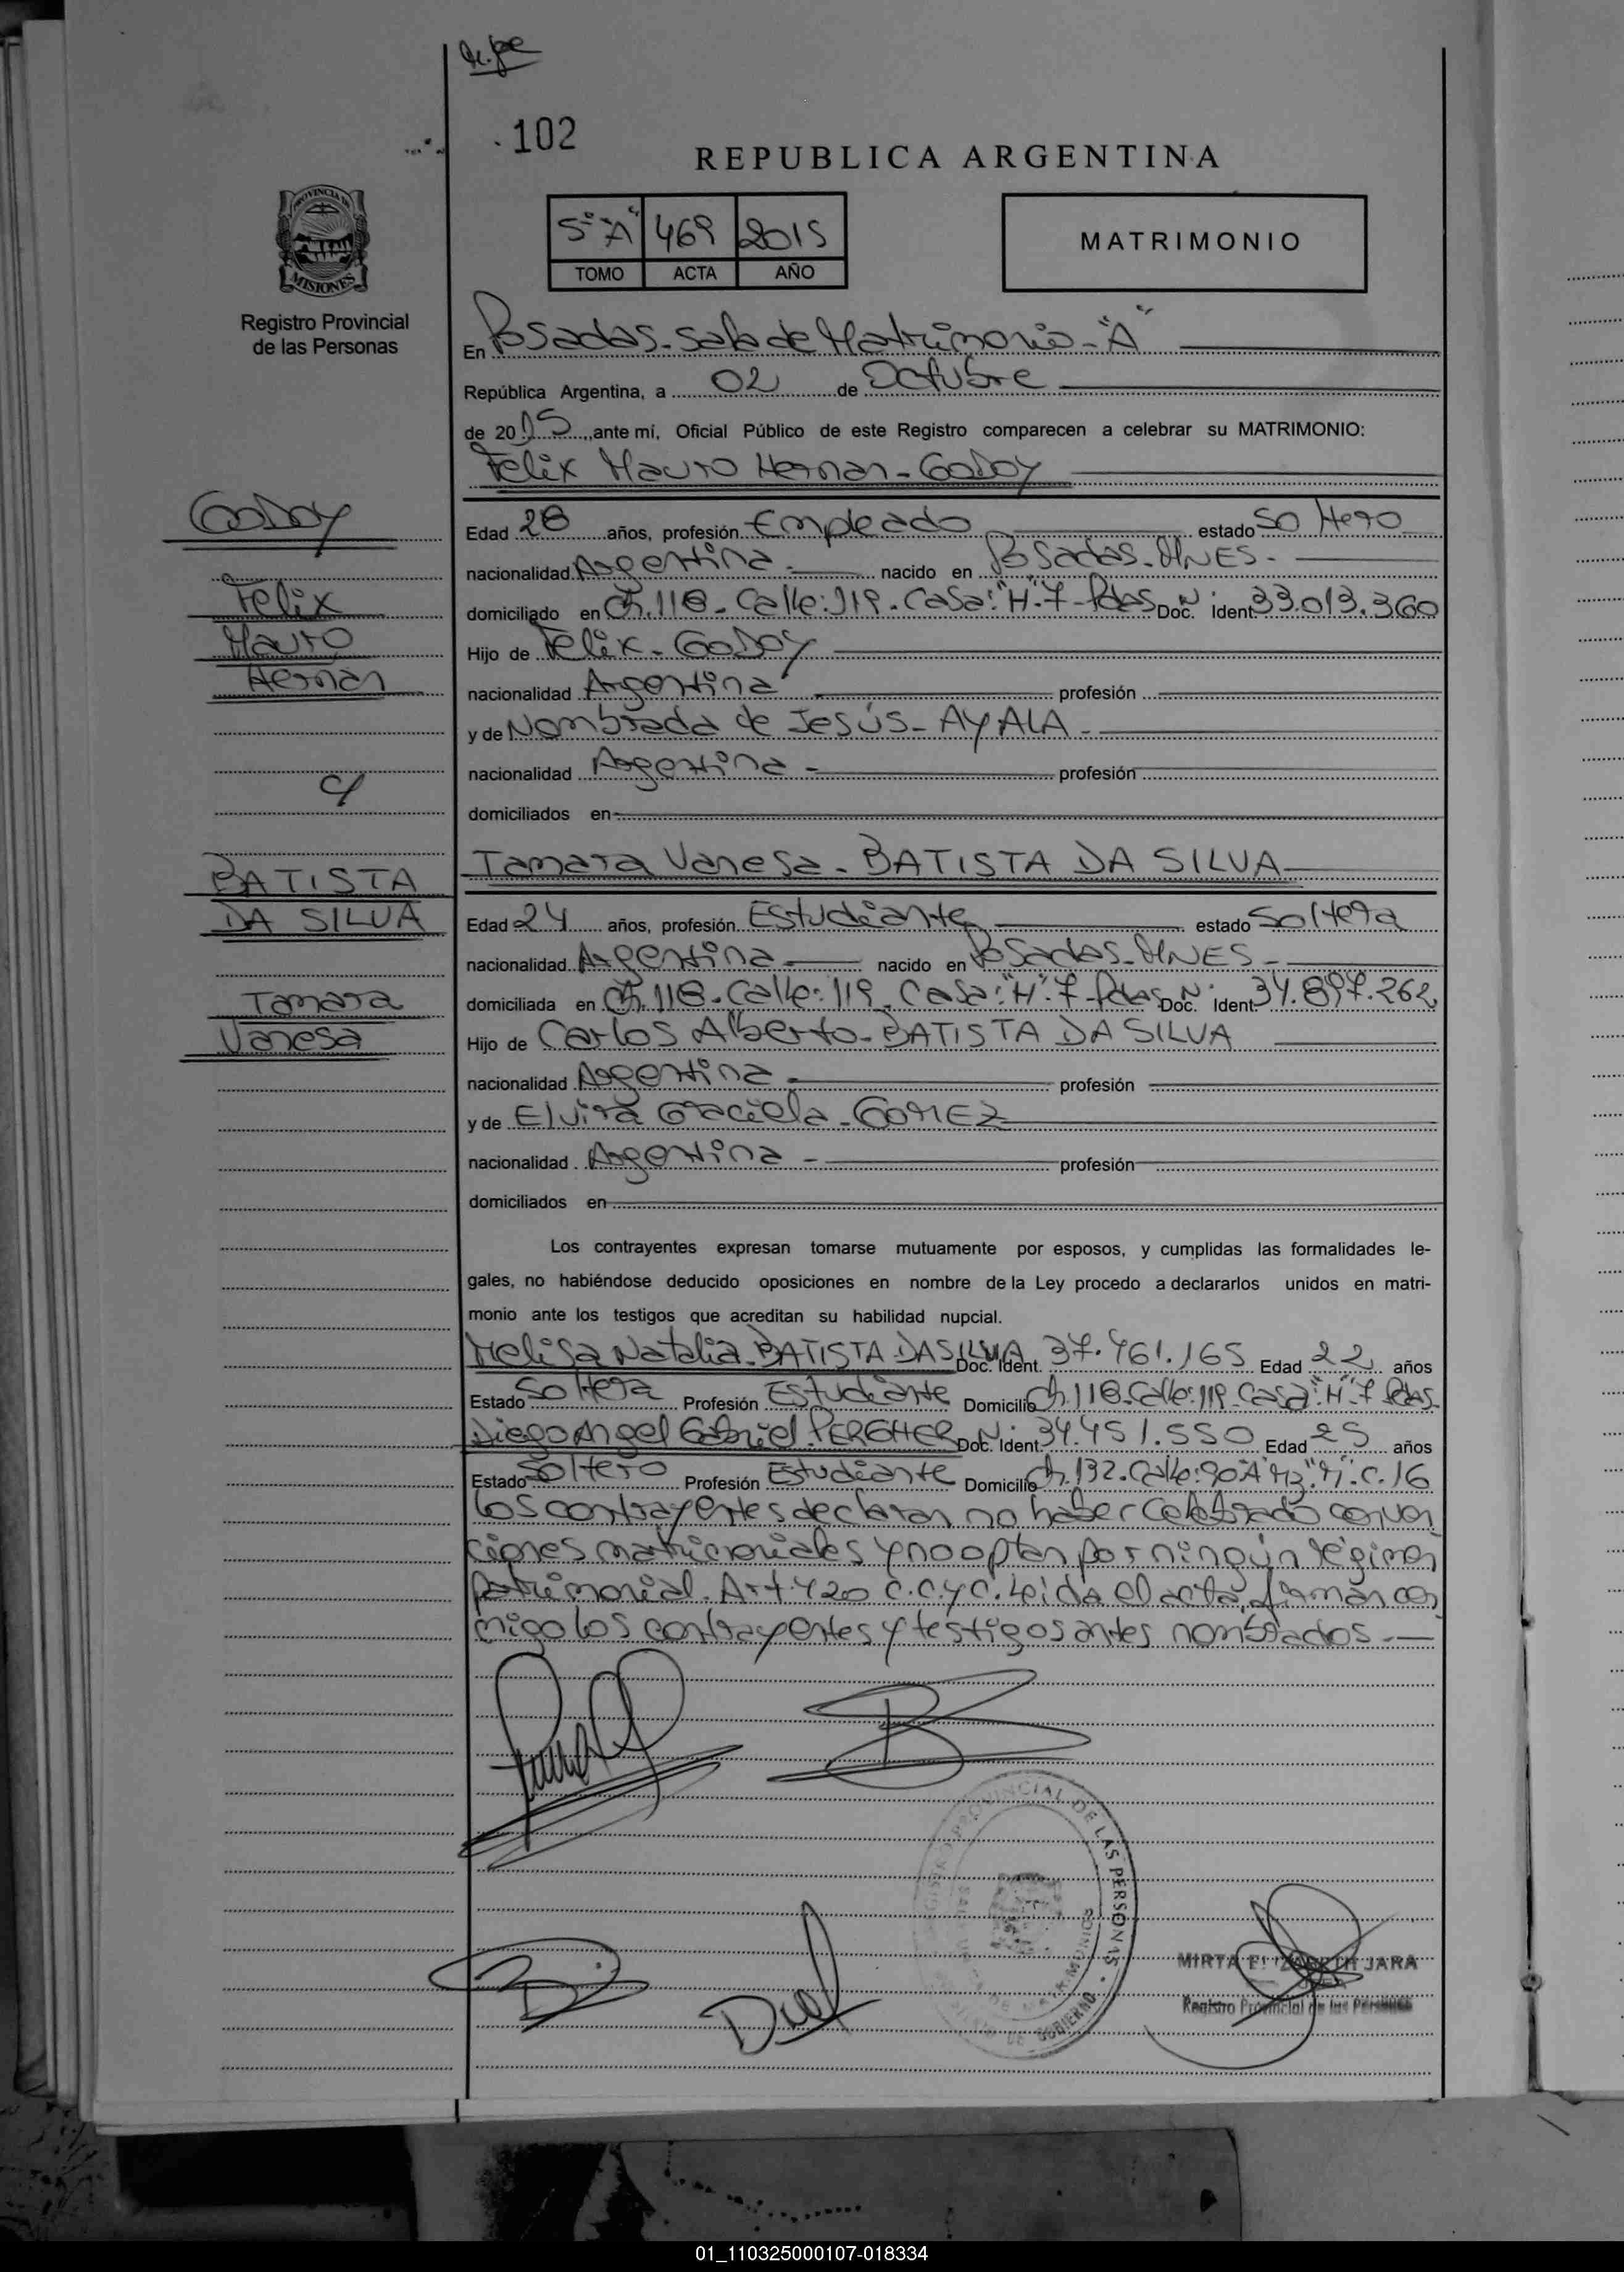 102
REPUBLICA ARGENTINA
5º "A" 469 2015
TOMO ACTA AÑO
MATRIMONIO
PROVINCIA DE
MISIONES
Registro Provincial
de las Personas
En Posadas - Sala de Matrimonio - "A"
República Argentina, a 02 de Octubre
de 2015, ante mí, Oficial Público de este Registro comparecen a celebrar su MATRIMONIO:
Felix Mauro Hernan - Godoy
Godoy
Felix
Mauro
Hernán
c/
BATISTA
DA SILVA
Tamara
Vanesa
Edad 28 años, profesión Empleado estado Soltero
nacionalidad Argentina - nacido en Posadas - MNES -
domiciliado en Ch. 118 - Calle: 119 - Casa: "H" - 7 - Pdas Doc. Nº ident. 33.013.360
Hijo de Felix - Godoy
nacionalidad Argentina profesión
y de Nombrada de Jesús - AYALA -
nacionalidad Argentina - profesión
domiciliados en
Tamara Vanesa - BATISTA DA SILVA
Edad 24 años, profesión Estudiante estado Soltera
nacionalidad Argentina - nacido en Posadas - MNES -
domiciliada en Ch. 118 - Calle: 119 - Casa: "H" - 7 - Pdas Doc. Nº ident. 34.897.262
Hijo de Carlos Alberto - BATISTA DA SILVA
nacionalidad Argentina - profesión
y de Elvira Graciela - GOMEZ
nacionalidad Argentina - profesión
domiciliados en
Los contrayentes expresan tomarse mutuamente por esposos, y cumplidas las formalidades le-
gales, no habiéndose deducido oposiciones en nombre de la Ley procedo a declararlos unidos en matri-
monio ante los testigos que acreditan su habilidad nupcial.
Melisa Natalia - BATISTA DA SILVA Doc. Ident. 37.461.165 Edad 22 años
Estado Soltera Profesión Estudiante Domicilio Ch. 118 - Calle: 119 - Casa: "H" - 7 Pdas -
Diego Angel Gabriel - PERGHER Doc. Nº Ident. 34.451.550 Edad 25 años
Estado Soltero Profesión Estudiante Domicilio Ch. 132 - Calle: 90 "A" Mz. C. 16
Los contrayentes declaran no haber celebrado conven
ciones matrimoniales y no optan por ningún régimen
patrimonial. Art. 420 C.C.y C. Leida el acta, firman con
migo los contrayentes y testigos antes nombrados. -
REGISTRO PROVINCIAL DE LAS PERSONAS
GOBIERNO
MIRTA ELIZABETH JARA
Registro Provincial de las Personas
01_110325000107-018334